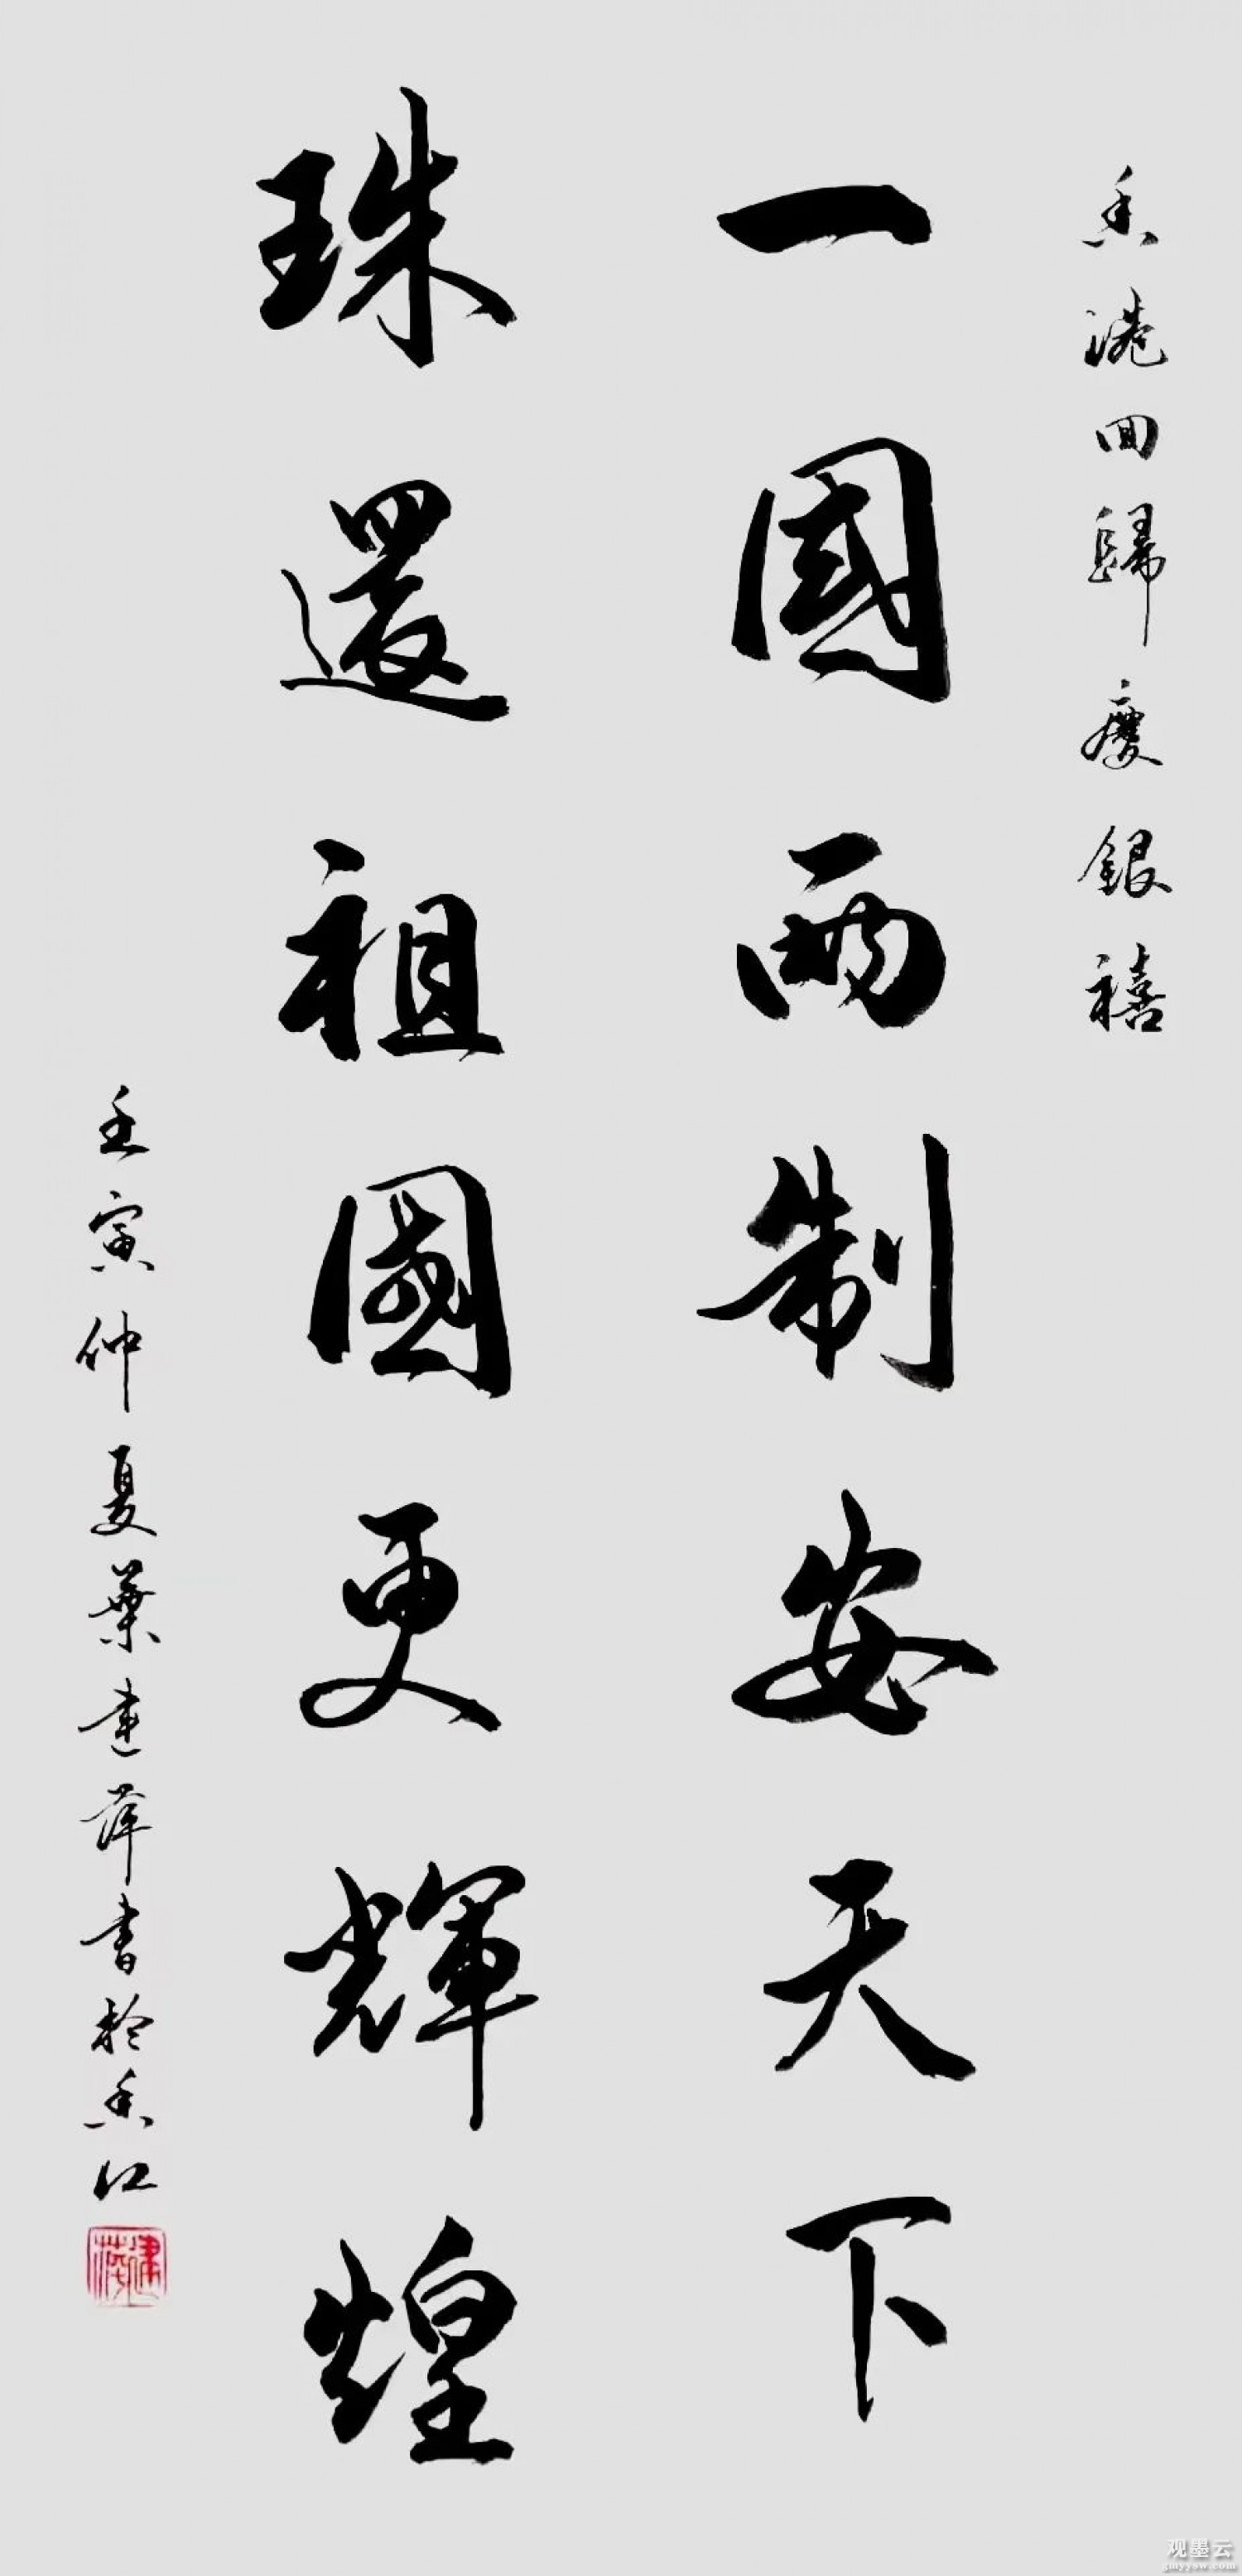 香港回歸慶銀禧
一國兩制安天下
珠還祖國更輝煌
壬寅仲夏葉建萍書於香江
观墨云
gmyysw.com